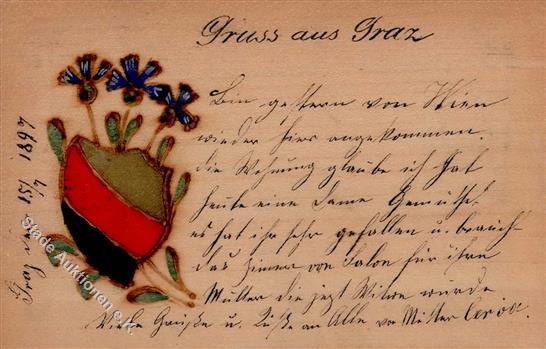 Gruss aus Graz
Bin gestern von Wien
wieder hier angekommen.
die Wohnung glaube ich hat
heute eine Dame
es hat ihr sehr gefallen u. braucht
das Zimer von Salon für ihre
Mutter die jezt Witwe wurde
Viele Grüße u. Küße an Alle von Mutter
Graz 15/7 1897
Stade Auktionen e.K.